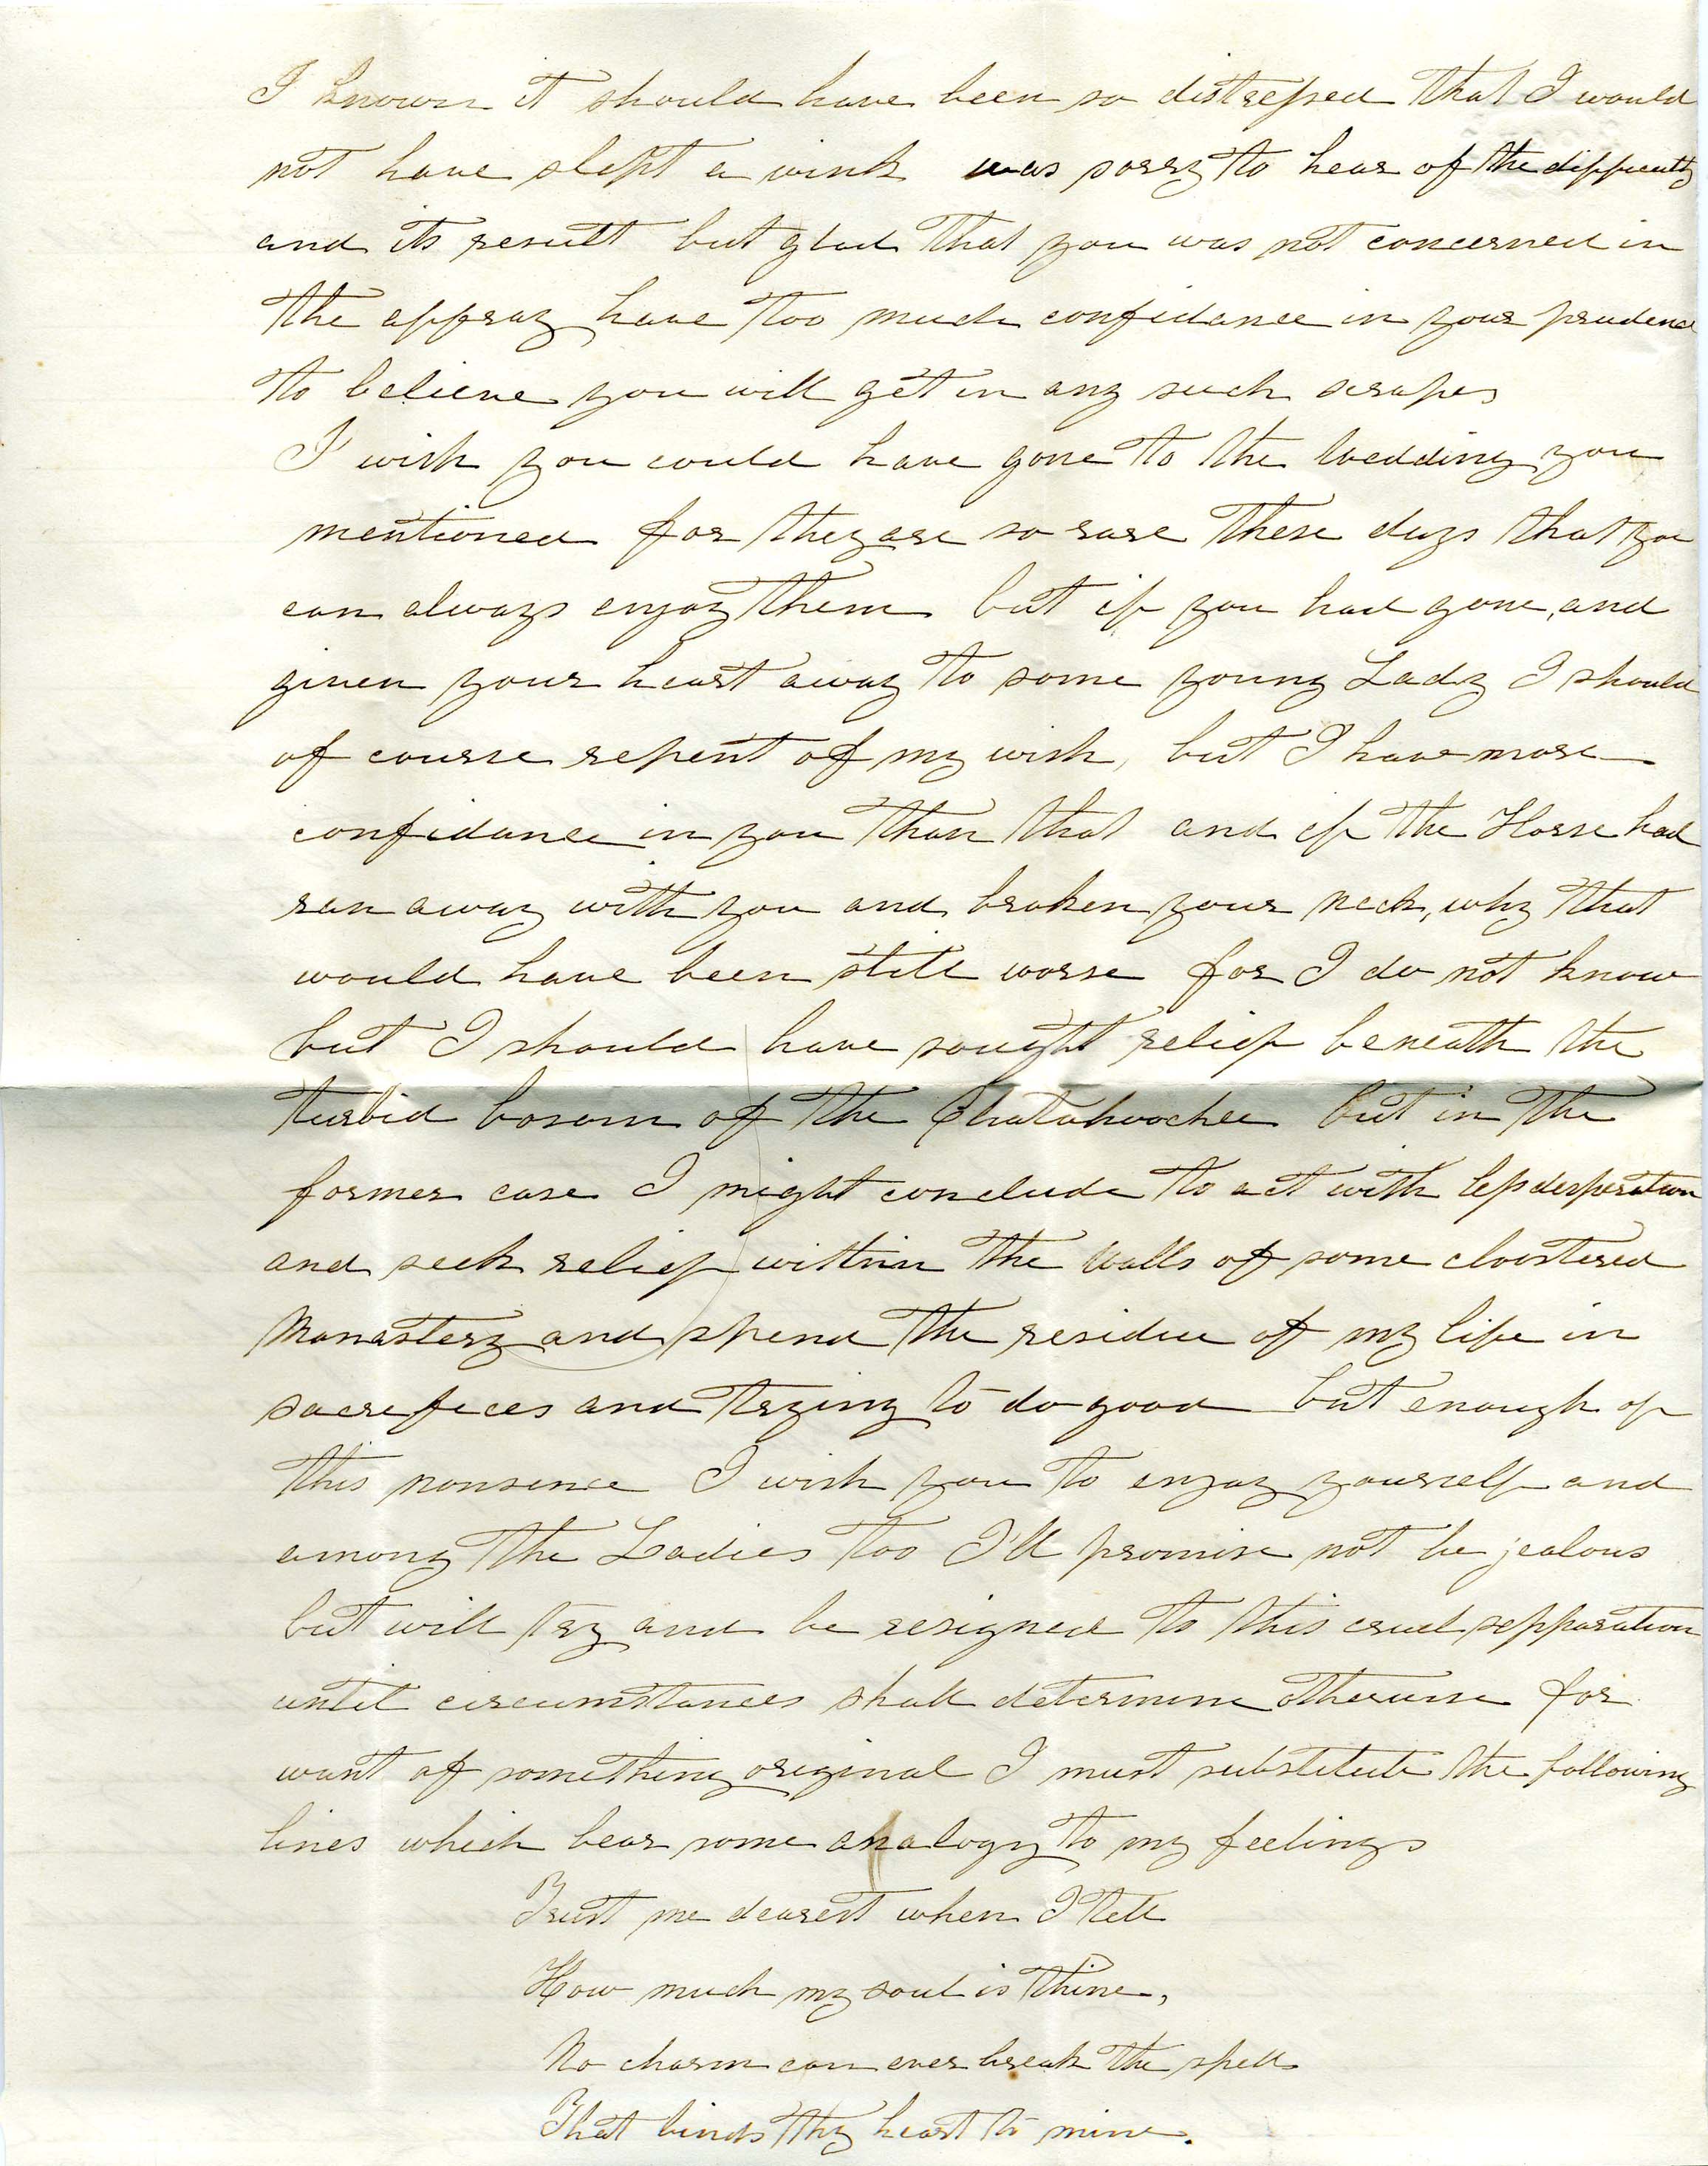 I known it should have been so distressed that I would
not have slept a wink was sorry to hear of the difficulty
and its result but glad that you was not concerned in
the affray have too much confidance in your prudence
to believe you will get in any such scrapes
I wish you could have gone to the Wedding you
mentioned for they are so rare these days that you
can always enjoy them but if you had gone, and
given your heart away to some young Lady I should
of course repent of my wish, but I have more
confidance in you than that and if the Horse had
ran away with you and broken your neck, why that
would have been still worse for I do not know
but I should have sought relief beneath the
turbid bosom of the Chatahoochee but in the
former case I might conclude to act with less desperation
and seek relief within the walls of some cloistered
Monastery and spend the residue of my life in
sacrefices and trying to do good but enough of
this nonsence I wish you to enjoy yourself and
among the Ladies too I'll promise not be jealous
but will try and be resigned to this cruel sepparation
until circumstances shall determine otherwise for
want of something original I must substitute the following
lines which bear some analogy to my feelings
Trust me dearest when I tell
How much my soul is thine,
No charm can ever break the spell
That binds thy heart to mine.